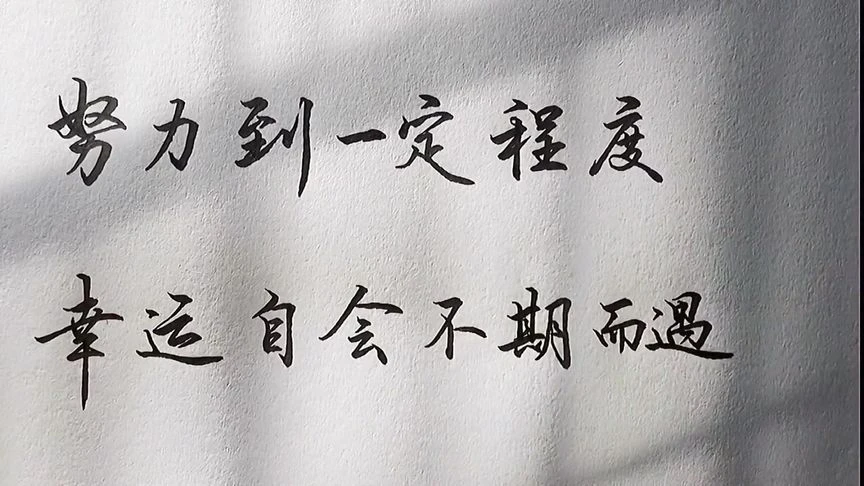 努力到一定程度
幸运自会不期而遇